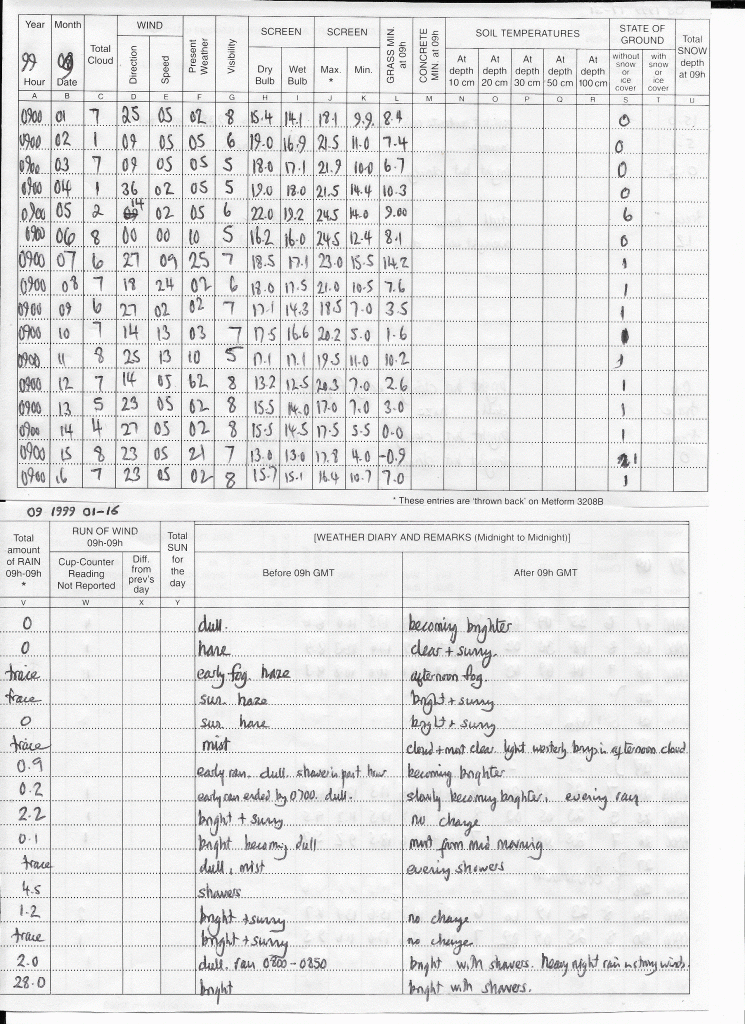 Year Month Total Cloud WIND Present Weather Visibility SCREEN SCREEN GRASS MIN. at 09h CONCRETE MIN. at 09h SOIL TEMPERATURES STATE OF GROUND Total SNOW depth at 09h
99 09 Direction Speed Dry Bulb Wet Bulb Max. * Min. At depth 10 cm At depth 20 cm At depth 30 cm At depth 50 cm At depth 100 cm without snow or ice cover with snow or ice cover
Hour Date
A B C D E F G H I J K L M N O P Q R S T U
0900 01 7 25 05 02 8 15.4 14.1 18.1 9.9 8.4 0
0900 02 1 09 05 05 6 19.0 16.9 21.5 11.0 7.4 0
0900 03 7 09 05 05 5 18.0 17.1 21.9 10.0 6.7 0
0900 04 1 36 02 05 5 19.0 18.0 21.5 14.4 10.3 0
0900 05 2 14 02 05 6 22.0 19.2 24.5 14.0 9.00
0900 06 8 00 00 10 5 16.2 16.0 24.5 12.4 8.1 0
0900 07 6 27 09 25 7 18.5 17.1 23.0 15.5 14.2 1
0900 08 7 18 24 02 6 18.0 17.5 21.0 10.5 7.6 1
0900 09 6 27 02 02 7 17.1 14.3 18.5 7.0 3.5 1
0900 10 7 14 13 03 7 17.5 16.6 20.2 5.0 1.6
0900 11 8 25 13 10 5 17.1 17.1 19.5 11.0 10.2 1
0900 12 7 14 05 62 8 13.2 12.5 20.3 7.0 2.6 1
0900 13 5 23 05 02 8 15.5 14.0 17.0 7.0 3.0 1
0900 14 4 27 05 02 8 15.5 14.5 17.5 5.5 0.0 1
0900 15 8 23 05 21 7 13.0 13.0 17.8 4.0 -0.9 1
0900 16 7 23 05 02 8 15.7 15.1 16.4 10.7 7.0 1
* These entries are 'thrown back' on Metform 3208B
09 1999 01-16
Total amount of RAIN 09h-09h * RUN OF WIND 09h-09h Total SUN for the day [WEATHER DIARY AND REMARKS (Midnight to Midnight)]
Cup-Counter Reading Not Reported Diff. from prev's day Before 09h GMT After 09h GMT
V W X Y
0 dull. becoming brighter
0 haze clear + sunny.
trace early fog. haze afternoon fog.
trace sun. haze bright + sunny
0 sun. haze bright + sunny
trace mist cloud + mist clear. light westerly in afternoon cloud.
0.9 early rain. dull. shower in past hour becoming brighter
0.2 early rain ended by 0700. dull. slowly becoming brighter. evening rain
2.2 bright + sunny no change
0.1 bright becoming dull mist from mid morning
trace dull, mist evening showers
4.5 showers
1.2 bright + sunny no change
trace bright + sunny no change
2.0 dull. rain 0800-0850 bright with showers. heavy night rain + strong winds.
28.0 bright bright with showers.